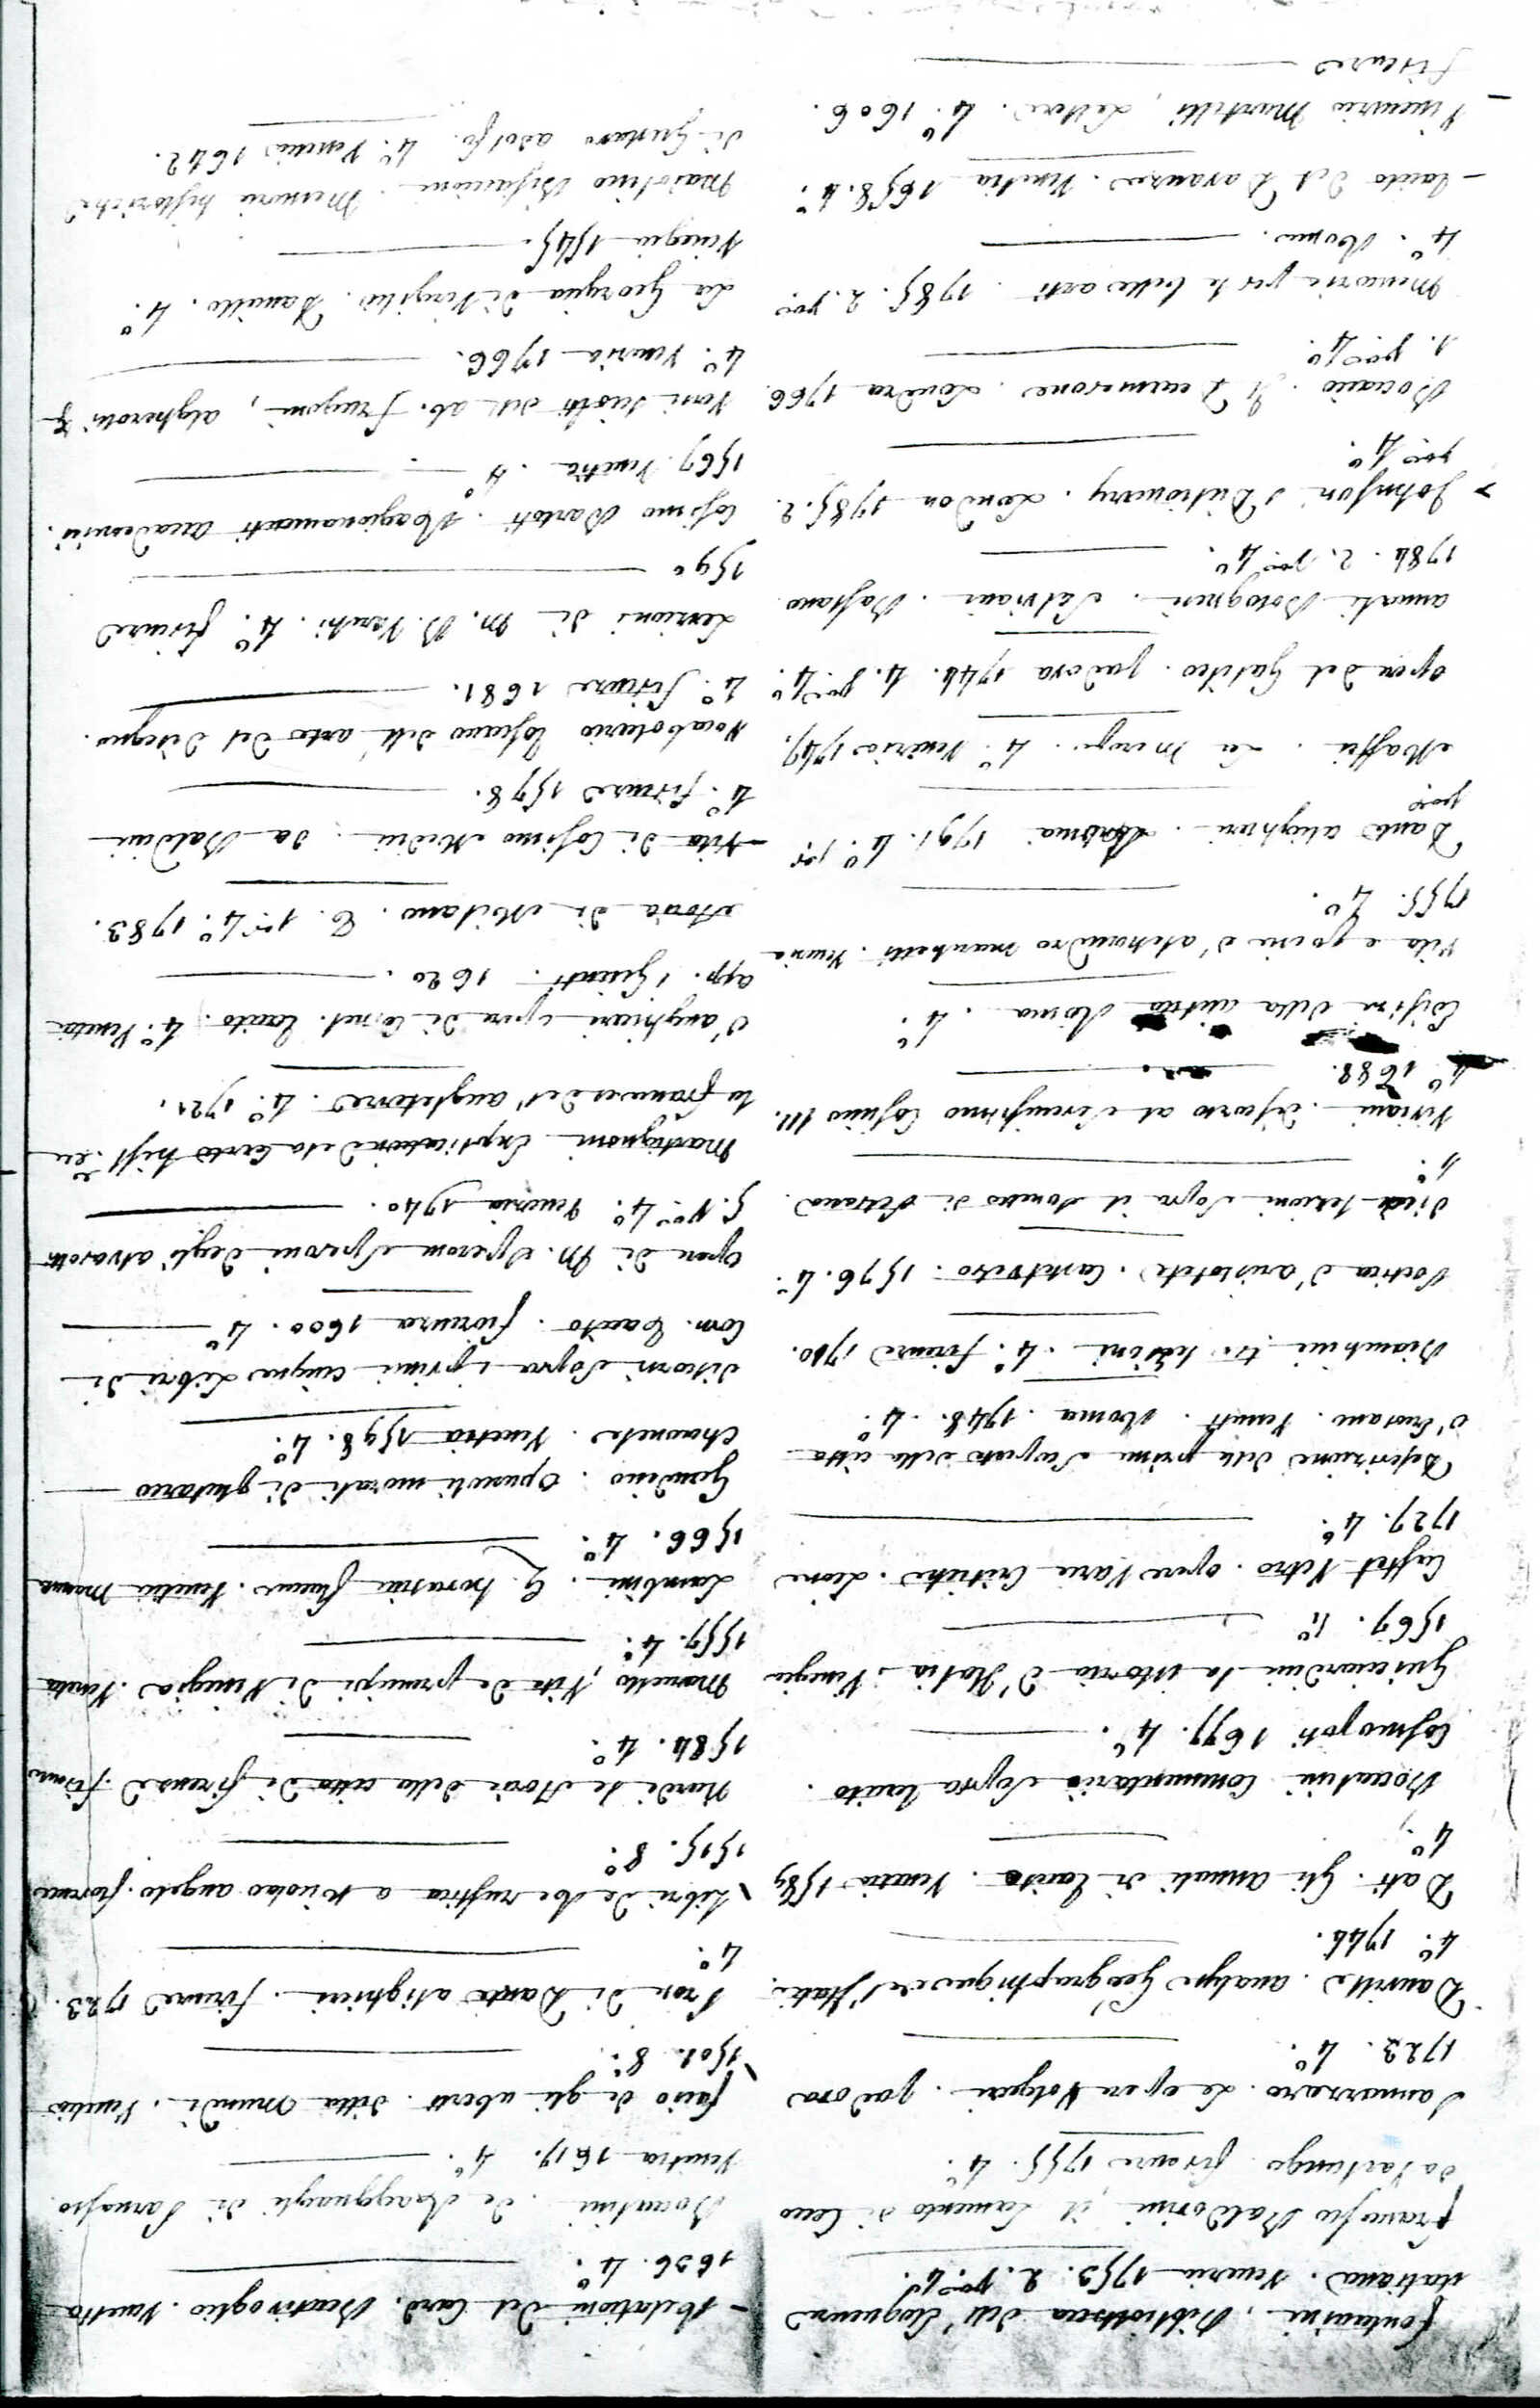 Fontanini. Biblioteca dell'Eloquenza
italiana. Venezia 1753. 2. vol 4°.
Francesco Baldovini, il Lamento di Cecco
da Varlungo. firenze 1755. 4°.
Sannazzaro. Le opere Volgari. padova
1723. 4°.
Danville. analyse Géographique de l'Italie.
4°. 1744.
Dati. Gli annali di Tacito. Venetia 1589
4°.
Boccalini Commentarii sopra Tacito.
Cosmopoli 1677. 4°.
Guicciardini la istoria d'Italia. Vinegia
1567. 4°
Castel Vetro. opere Varie Critiche. Lione
1727. 4°.
Descrizione delle prime scoperte della città
d'Ercolano. Venuti. Roma. 1748. 4°.
Bianchini tre lezioni. 4°. firenze 1710.
Poetica d'aristotele. Castelvetro. 1576. 4°.
dieci lezioni sopra il sonetto di Petrarca.
4°.
Viviani. discorso al Serenissimo Cosimo III.
4° 1688.
Edifizi della antica Roma. 4°.
Vita e poesie d'alessandro marchetti. Venezia
1755. 4°.
Dante alighieri. Roma 1791. 4°. 1er
vol
Maffei. La Merope. 4°. Venezia 1747.
opere del Galileo. padova 1744. 4. vol 4°.
annali Bolognesi. Savioli. Bassano
1784. 2. vol 4°.
Johnson's Dictionary. London 1785. 2.
vol 4°.
Bocacio. Il Decamerone. Londra 1766.
1. vol 4°.
Memorie per le belle arti. 1785. 2. vol
4°. Roma.
– Tacito del Davanzo. Venetia 1658. 4°.
– Vincenzio Martelli, Lettere. 4°. 1606.
firenze
– Relationi del Card. Bentivoglio. Venetia
1636. 4°.
Boccalini. de Ragguagli di Parnasso.
Venetia 1617. 4°.
fazio de gli uberti. ditta mundi. Venetia
1501. 8°.
Prose di Dante alighieri. firenze 1723.
4°.
Libri de Re rustica a Nicolao angelo. florentia
1515. 8°.
Nardi le storie della città di firenze. firenze
1584. 4°.
Marcello, Vite de prencipi di Vinegia. Venetia
1557. 4°.
Lambini. Q. horatius flaccus. Venetia
1566. 4°.
Gandino. Opuscoli morali di plutarco
Cheronese. Venetia 1598. 4°.
discorsi sopra i primi cinque Libri di
Corn. Tacito. fiorenza 1600. 4°
Opere di M. Speron Speroni degli alvarotti
5. vol. 4°. Venezia 1740.
Martignoni. Explication de la Carte hist. de
la france et de l'angleterre. 4°. 1721.
d'anghiari opere di Cornel. Tacito. 4°. Venetia
app. i Giunti. 1620.
storia di Milano. 1er 4°. 1783.
– Vita di Cosimo Medici. da Baldini
4°. firenze 1578.
Vocabolario Toscano dell'arte del disegno.
4°. firenze 1681.
Lezzioni di M. B. Varchi. 4°. firenze
1590
Cosimo Bartoli. Ragionamenti accademici.
1567. Venetia. 4°
Versi sciolti dell'ab. frugoni, algarotti
4°. Venezia 1766.
La Georgica di Virgilio. Daniello. 4°.
Vinegia 1545.
Maiolino Bisaccioni. Memorie historiche
di Gustavo adolfo. 4°. Venetia 1642.